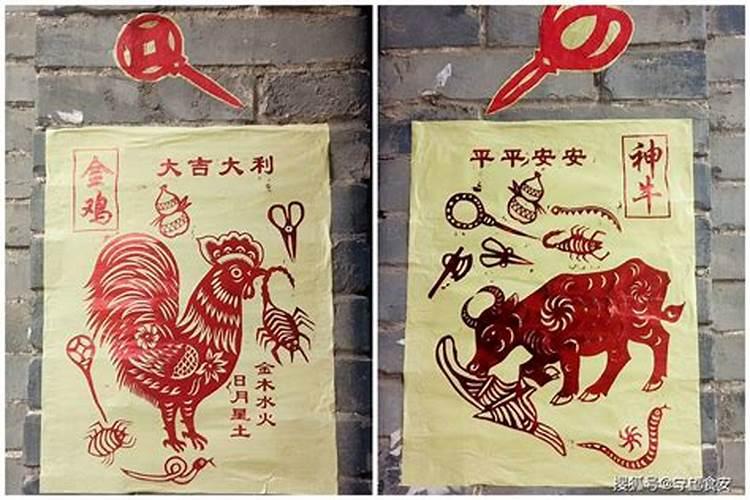 金鸡
大吉大利
金木水火
日月星土
平平安安
神牛
搜狐号@寻根食安